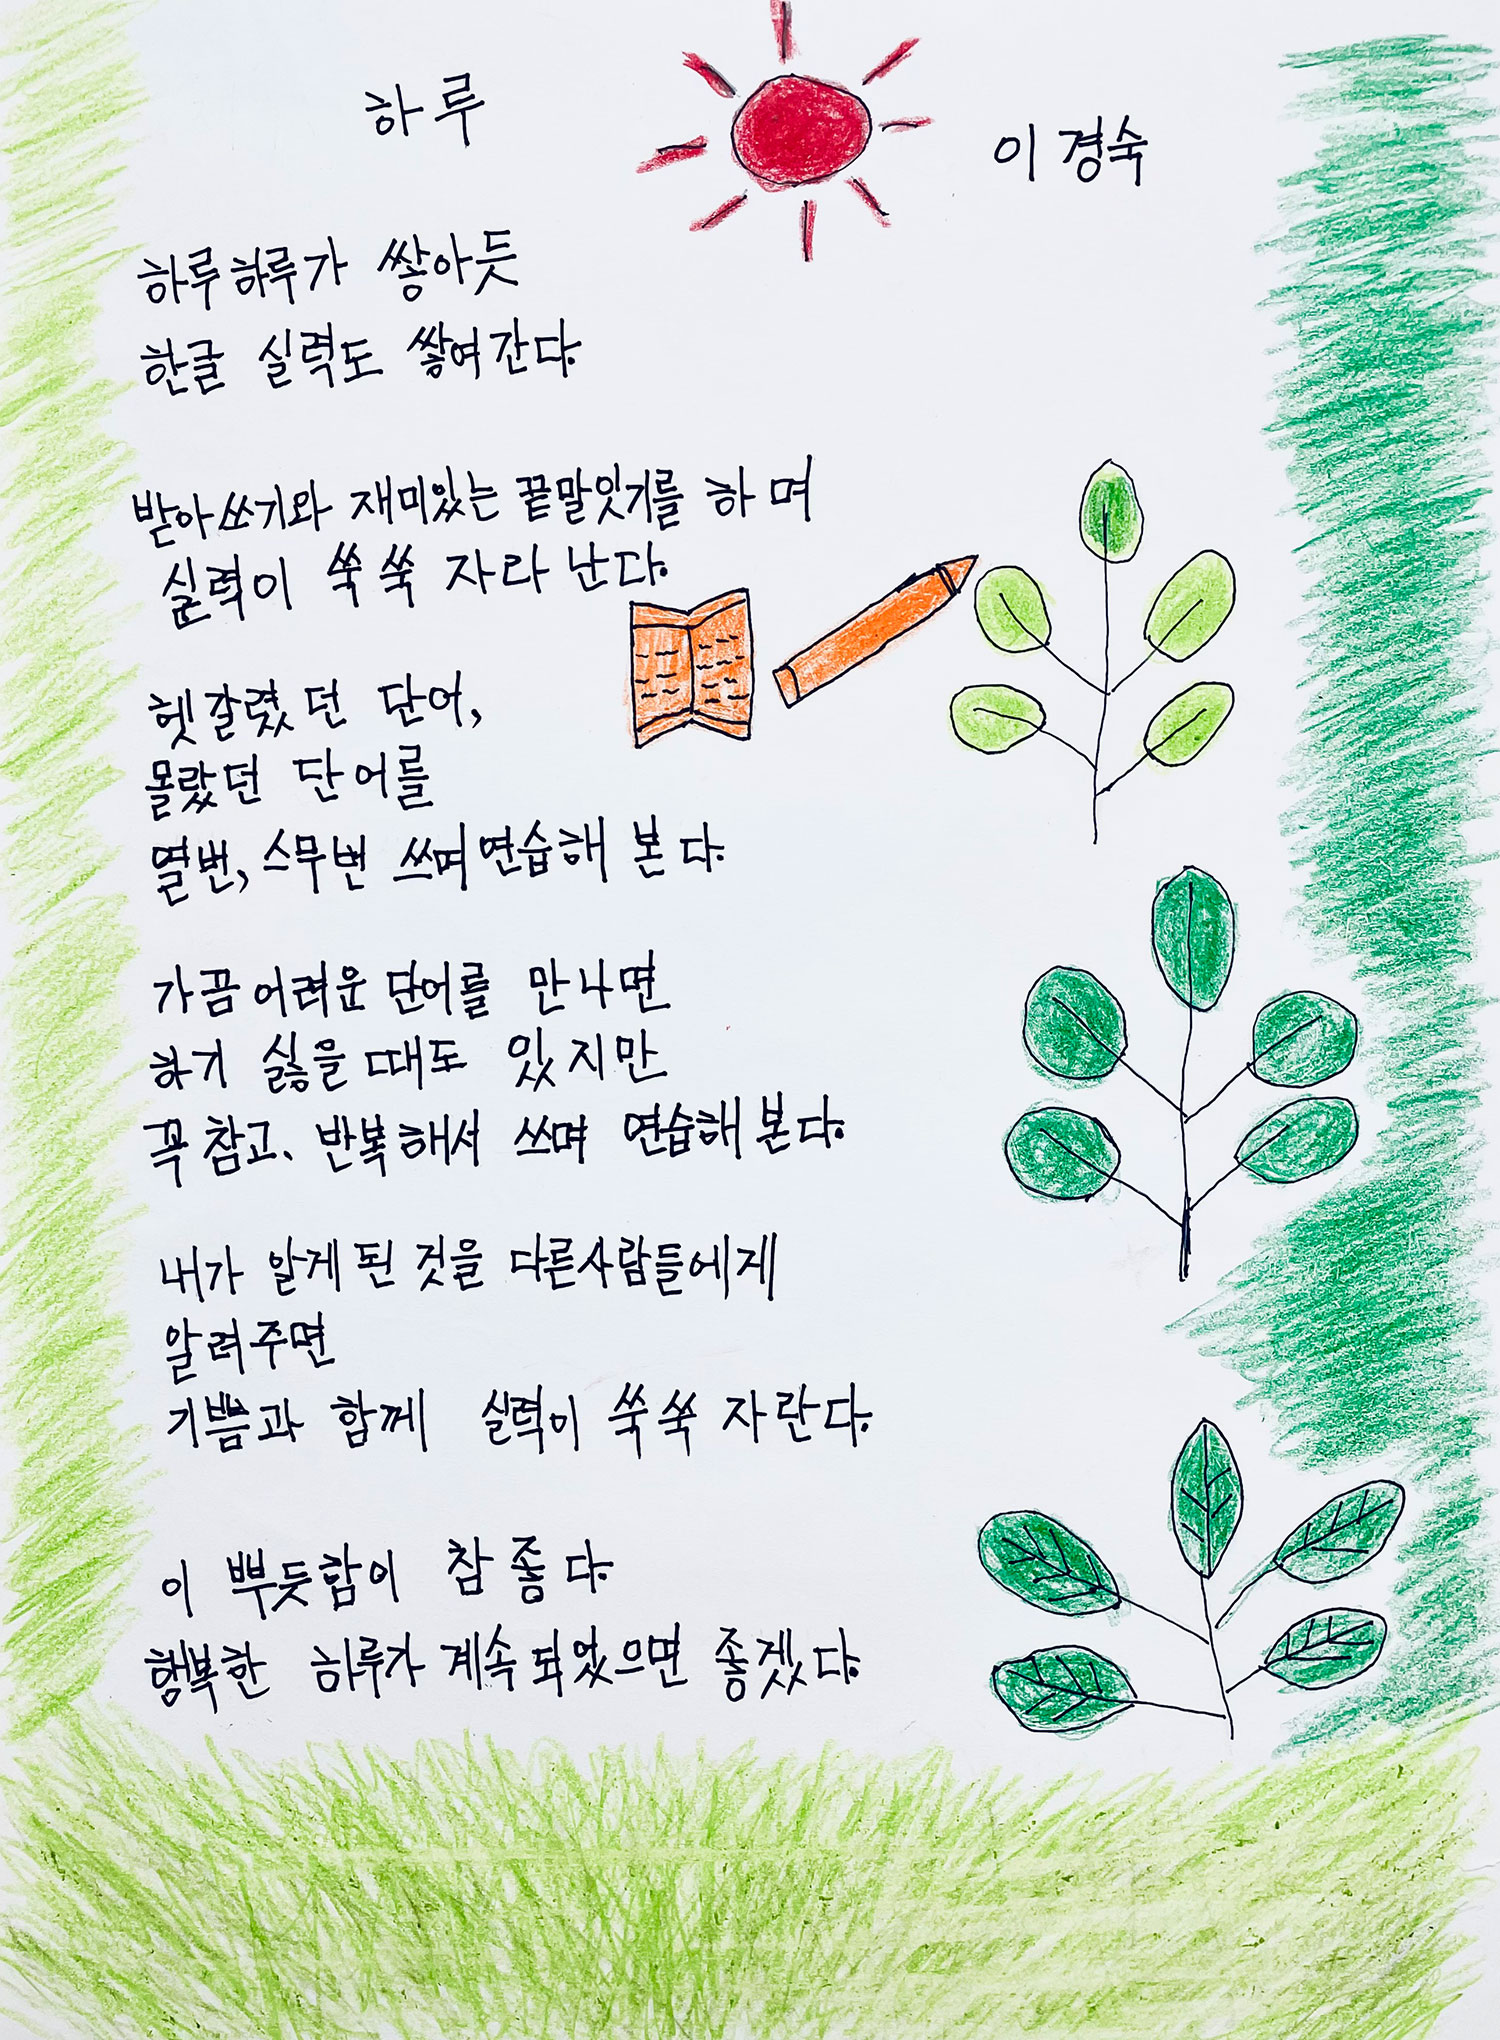 하루
이경숙
하루하루가 쌓아듯
한글 실력도 쌓여간다.
받아쓰기와 재미있는 끝말잇기를 하며
실력이 쑥쑥 자라난다.
헷갈렸던 단어,
몰랐던 단어를
열번, 스무번 쓰며연습해 본다.
가끔 어려운 단어를 만나면
하기 싫을 때도 있지만
꼭 참고, 반복해서 쓰며 연습해 본다.
내가 알게 된 것을 다른사람들에게
알려주면
기쁨과 함께 실력이 쑥쑥 자란다.
이 뿌듯함이 참 좋다.
행복한 하루가 계속되었으면 좋겠다.